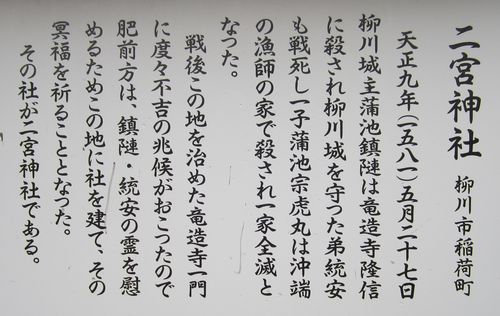 二宮神社 柳川市稲荷町
天正九年(一五八一)五月二十七日
柳川城主蒲池鎮漣は竜造寺隆信
に殺され柳川城を守つた弟統安
も戦死し一子蒲池宗虎丸は沖端
の漁師の家で殺され一家全滅と
なつた。
戦後この地を治めた竜造寺一門
に度々不吉の兆候がおこつたので
肥前方は、鎮漣・統安の霊を慰
めるためこの地に社を建て、その
冥福を祈ることとなつた。
その社が二宮神社である。